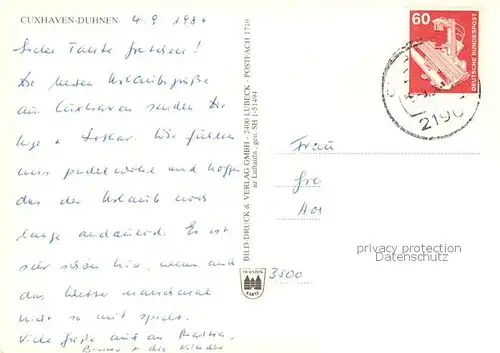 CUXHAVEN-DUHNEN 4.9 198
Liebe Tante
Die besten Urlaubsgrüße
aus Cuxhaven senden Dir
Inge + Lothar. Wir fühlen
uns pudelwohl und hoffen
das der Urlaub noch
lange andauerd. Es ist
sehr schön hier, wenn auch
das Wetter manchmal
nicht so mit spielt.
Viele Grüße auch an
+ die Kinder
BILD-DRUCK & VERLAG GMBH - 2400 LÜBECK - POSTFACH 1710
az Luftaufn., gen. SH 1-51494
KARTE
60
DEUTSCHE BUNDESPOST
2190
Frau
3500
privacy protection
Datenschutz